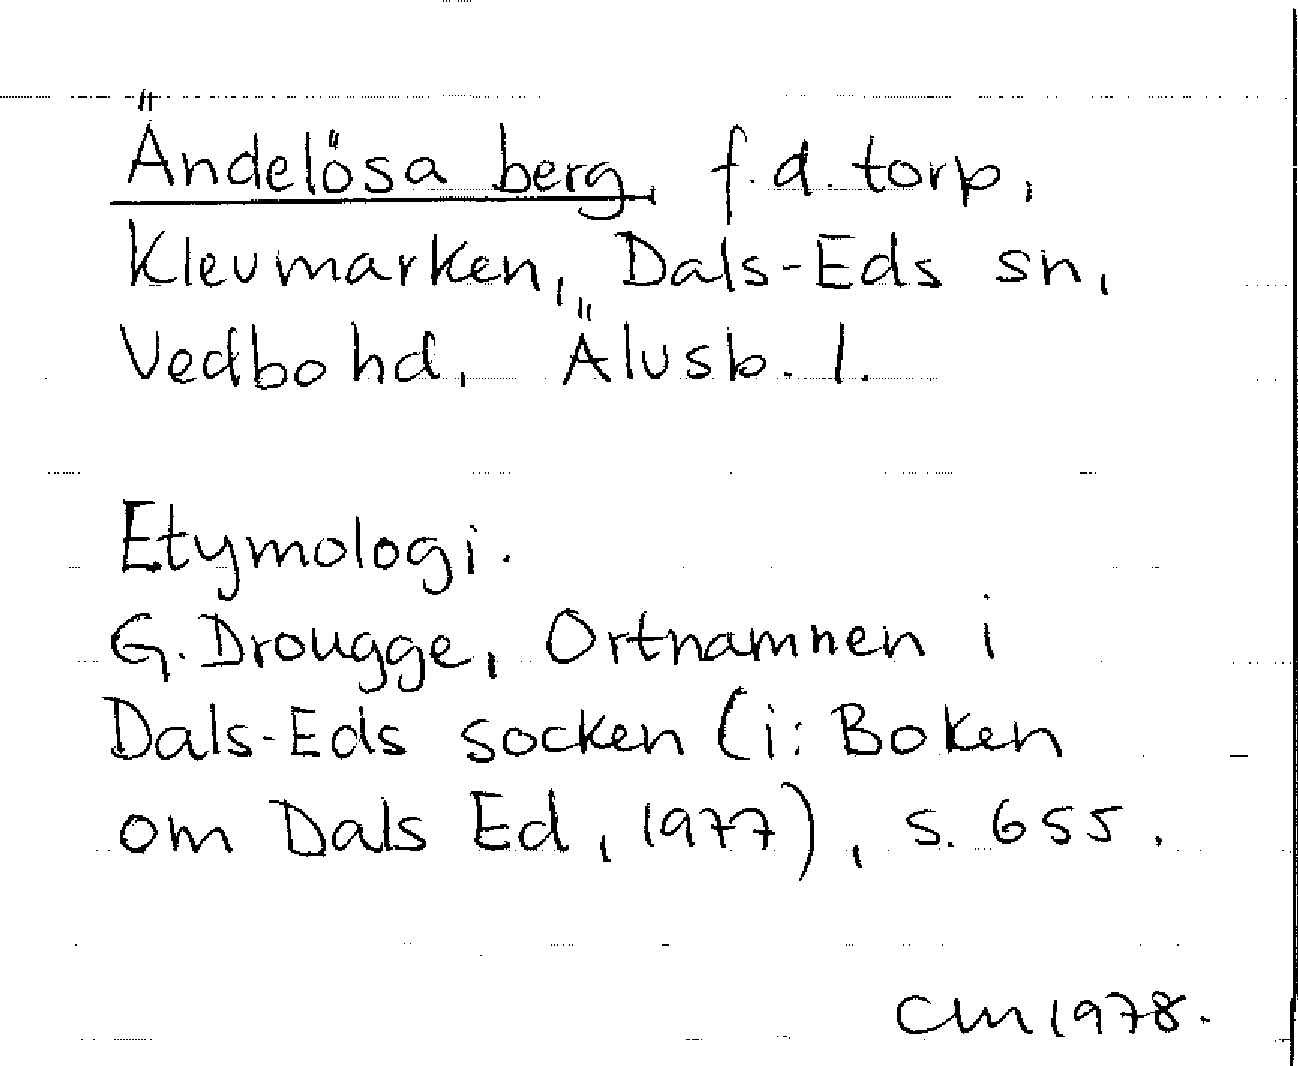 Ändelösa berg, f.d. torp,
Klevmarken, Dals-Eds sn,
Vedbo hd, Älvsb. l.
Etymologi.
G. Drougge, Ortnamnen i
Dals-Eds socken (i: Boken
om Dals Ed, 1977), s. 655.
CM 1978.